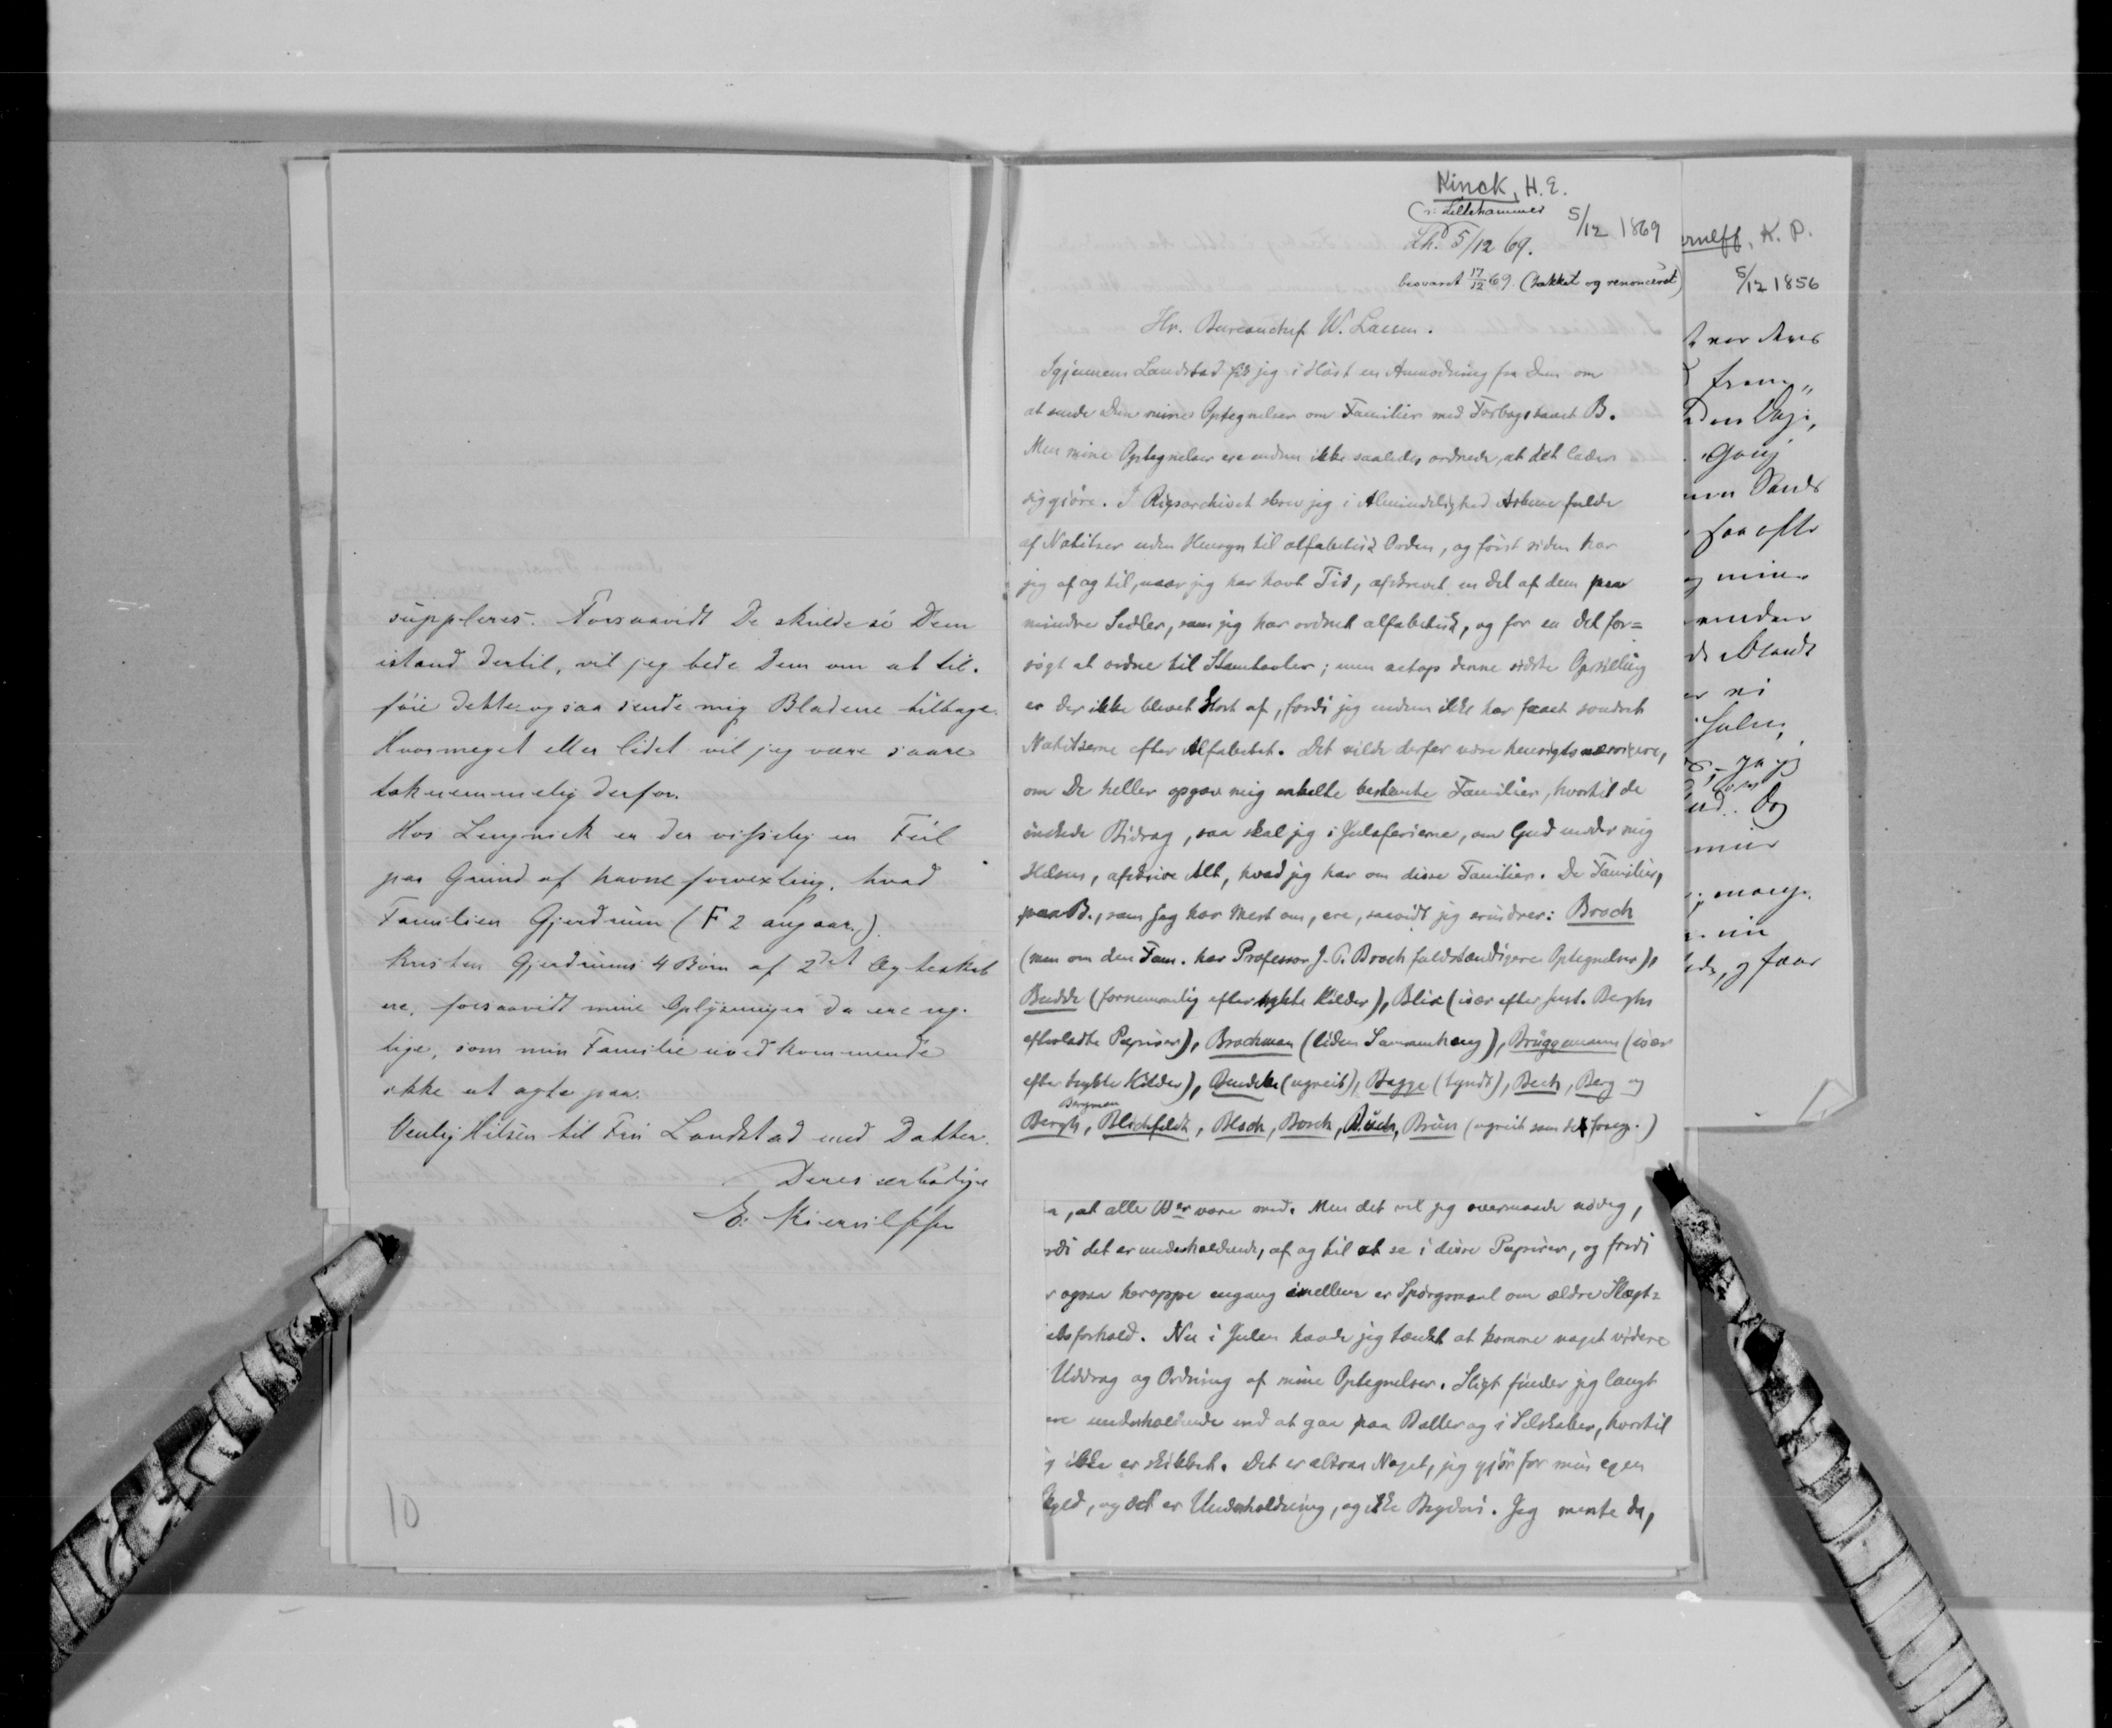 suppleres. Forsaavidt De skulde se Dem
istand dertil, vil jeg bede Dem om at til-
föie dette og saa sende mig Bladene tilbage.
Hvormeget eller lidet vil jeg være saare
taknemmelig derfor.
Hos Lengnick er der visselig en Feil
paa Grund af Navneforvexling, hvad
Familien Gjerdrum (F 2 angaar.)
Kristen Gjerdrums 4 Börn af 2det Ægteskab
ere, forsaavidt mine Oplysninger da ere rig-
tige, som min Familie uvedkommende
ikke at agte paa.
Venlig Hilsen til Fru Landstad med Datter.
Deres ærbödige
E. Kierulffsen
10
Kinck, H. E.
(: Lillehammer
5/12 1869
Lh. 5/12 69.
besvaret 17/12 69. (takket og renonceret)
Hr. Bureauchef W. Lassen.
Igjennem Landstad fik jeg i Höst en Anmodning fra Dem om
at sende Dem mine Optegnelser om Familier med Forbogstavet B.
Men mine Optegnelser ere endnu ikke saaledes ordnede, at det lader
sig gjöre. I Rigsarchivet skrev jeg i Almindelighed Arkene fulde
af Notitser uden Hensyn til alfabetisk Orden, og först siden har
jeg af og til, naar jeg har havt Tid, afskrevet en Del af dem paa
mindre Sedler, som jeg har ordnet alfabetisk, og for en Del for=
sögt at ordne til Stamtavler; men netop denne sidste Opstilling
er der ikke blevet Stort af, fordi jeg endnu ikke har faaet sondret
Notitserne efter Alfabetet. Det vilde derfor være hensigtsmæssigere,
om De heller opgav mig enkelte bestemte Familier, hvortil de
önskede Bidrag, saa skal jeg i Juleferierne, om Gud under mig
Helsen, afskrive Alt, hvad jeg har om disse Familier. De Familier,
paa B., som jeg har Mest om, ere, saavidt jeg erindrer: Broch
(men om den Fam. har Professor J. P. Broch fuldstændigere Optegnelser),
Budde (fornemmelig efter trykte Kilder), Blix (især efter Just. Berghs
efterladte Papirer), Brochman (liden Sammenhæng), Brüggemann (især
efter trykte Kilder), Bendeke (ugreit), Bagge (tyndt), Bech, Berg og
Bergman
Bergh, Blichfeldt, Bloch, Borch, Buch, Brun (ugreit som de forrg.)
, at alle B er vare med. Men det vil jeg overmaade nödig,
rdi det er underholdende, af og til at se i disse Papirer, og fordi
r ogsaa heroppe engang imellem er Spörgsmaal om ældre Slægt=
sforhold. Nu i Julen havde jeg tænkt at komme noget videre
Uddrag og Ordning af mine Optegnelser. Sligt finder jeg langt
ere underholdende end at gaa paa Baller og i Selskaber, hvortil
g ikke er skikket. Det er altsaa Noget, jeg gjör for min egen
kyld, og det er Underholdning, og ikke Bryderi. Jeg mente da,
rulff, K. P.
5/12 1856
frem,,
Gang
saa ofte
og min
er vi
Julen,
mange
og faar